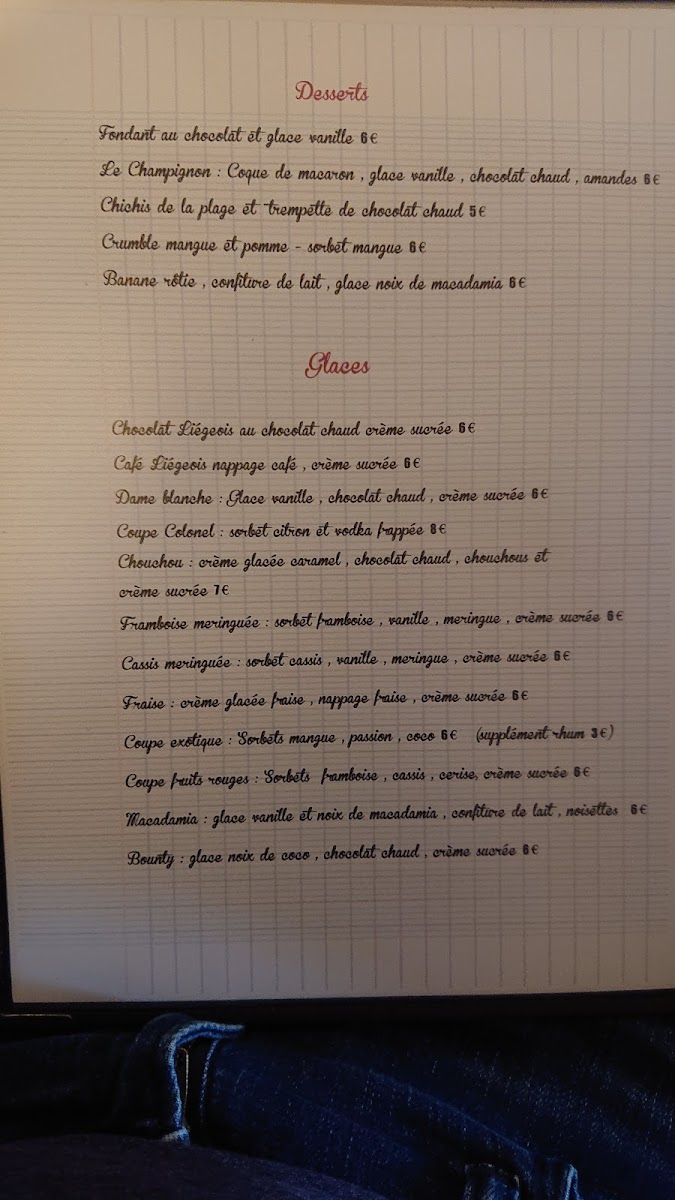 Desserts
Fondant au chocolat et glace vanille 6€
Le Champignon : Coque de macaron , glace vanille , chocolat chaud , amandes 6€
Chichis de la plage et trempette de chocolat chaud 5€
Crumble mangue et pomme - sorbet mangue 6€
Banane rôtie , confiture de lait , glace noix de macadamia 6€
Glaces
Chocolat Liégeois au chocolat chaud crème sucrée 6€
Café Liégeois nappage café , crème sucrée 6€
Dame blanche : Glace vanille , chocolat chaud , crème sucrée 6€
Coupe Colonel : sorbet citron et vodka frappée 8€
Chouchou : crème glacée caramel , chocolat chaud , chouchous et
crème sucrée 7€
Framboise meringuée : sorbet framboise , vanille , meringue , crème sucrée 6€
Cassis meringuée : sorbet cassis , vanille , meringue , crème sucrée 6€
Fraise : crème glacée fraise , nappage fraise , crème sucrée 6€
Coupe exotique : Sorbets mangue , passion , coco 6€ (supplément rhum 3€)
Coupe fruits rouges : Sorbets framboise , cassis , cerise, crème sucrée 6€
Macadamia : glace vanille et noix de macadamia , confiture de lait , noisettes 6€
Bounty : glace noix de coco , chocolat chaud , crème sucrée 6€